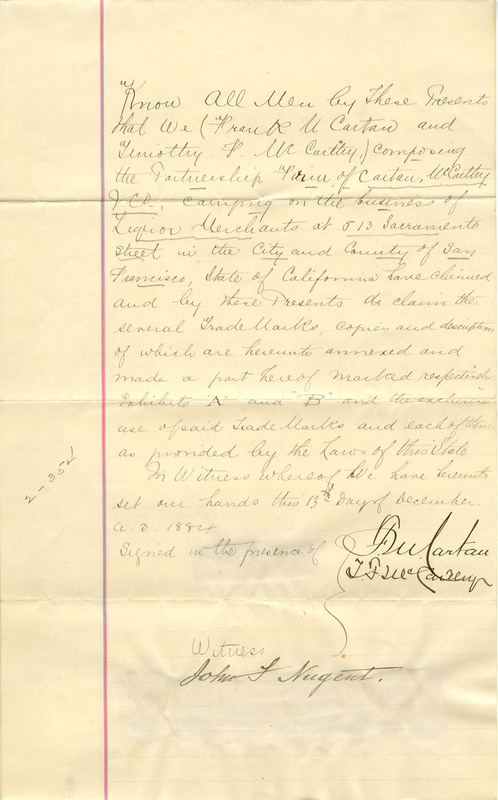 "Know All Men by These Presents
that we (Frank M Cartan and
Timothy F. McCarthy,) composing
the Partnership Firm of Cartan, McCarthy
& Co., carrying on the business of
Liquor Merchants at 513 Sacramento
Street in the City and County of San
Francisco, State of California have claimed
and by these Presents do claim the
several Trade Marks, copies and description
of which are hereunto annexed and
made a part hereof marked respectively
Exhibits "A" and "B" and the exclusive
use of said Trade Marks and each of them
as provided by the Laws of this State
In Witness whereof We have hereunto
set our hands this 13th Day of December.
A.D. 1884
Signed in the presence of
F M Cartan
T F McCarthy
Witness
John F Nugent.
2-352